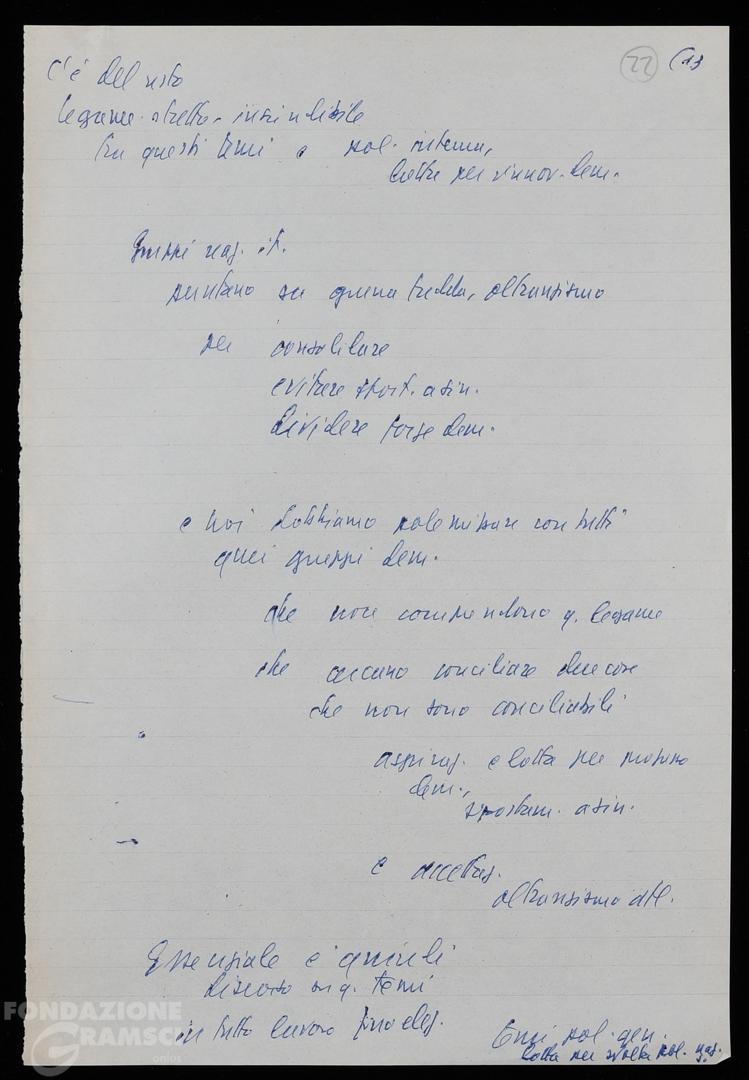 22 (13
C'è del resto
legame stretto, inscindibile
tra questi temi e pol. interna,
lotta per rinnov. dem.
Gruppi reaz. it.
puntano su guerra fredda, oltranzismo
per consolidare
evitare spost. a sin.
dividere forze dem.
e noi dobbiamo polemizzare con tutti
quei gruppi dem.
che non comprendono q. legame
che cercano conciliare due cose
che non sono conciliabili
aspiraz. e lotta per progresso
dem.,
spostam. a sin.
e accettaz.
oltranzismo atl.
Essenziale è quindi
discorso su q. temi
in tutto lavoro fino elez.
Temi pol. gen.
lotta per svolta pol. naz.
FONDAZIONE
GRAMSCI
onlus